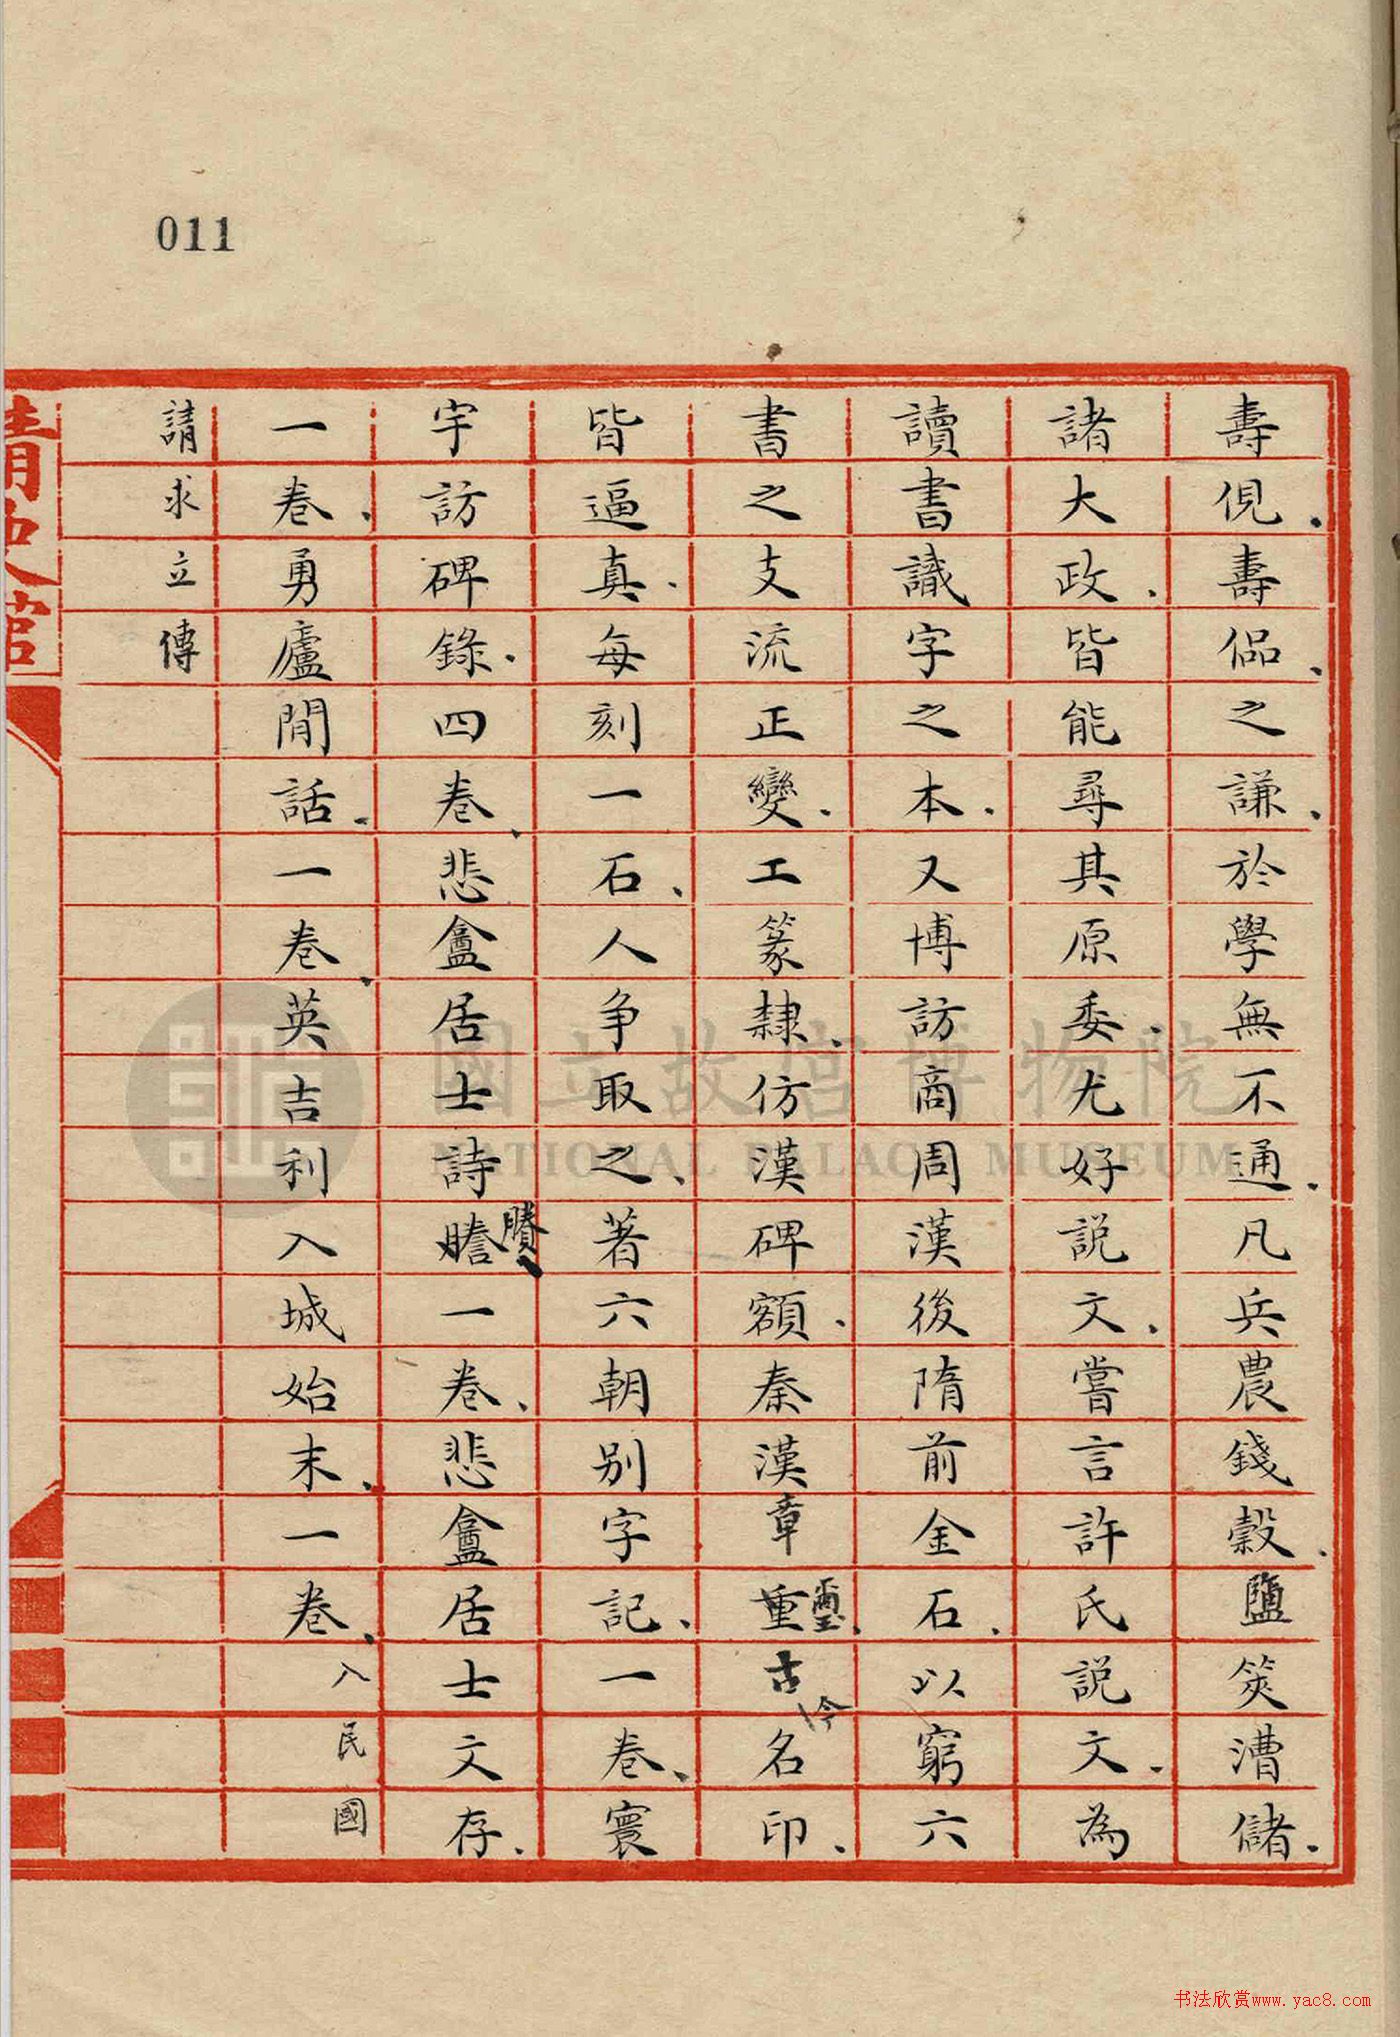 011
壽俔壽侣之謙於學無不通凡兵農錢穀鹽筴漕儲
諸大政皆能尋其原委尤好説文嘗言許氏説文為
讀書識字之本又博訪商周漢後隋前金石以窮六
書之支流正變工篆隷仿漢碑額秦漢章重古名印
璽
今
皆逼真每刻一石人争取之著六朝别字記一卷寰
宇訪碑錄四卷悲盦居士詩膽一卷悲盦居士文存
賸
一卷勇廬閒話一卷英吉利入城始末一卷入民國
請求立傳
清史館
國立故宮博物院
NATIONAL PALACE MUSEUM
书法欣赏www.yac8.com